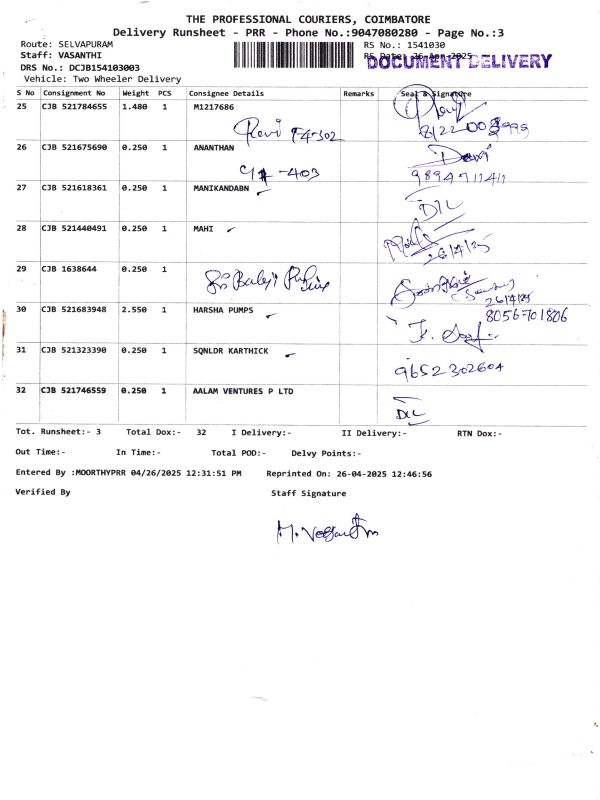 THE PROFESSIONAL COURIERS, COIMBATORE
Delivery Runsheet - PRR - Phone No.:9047080280 - Page No.:3
Route: SELVAPURAM
Staff: VASANTHI
DRS No.: DCJB154103003
Vehicle: Two Wheeler Delivery
RS No.: 1541030
RS Date: 26-Apr-2025
DOCUMENT DELIVERY
S No Consignment No Weight PCS Consignee Details Remarks Seal & Signature
25 CJB 521784655 1.480 1 M1217686
Ravi F4-302
26 CJB 521675690 0.250 1 ANANTHAN
-403
9894711411
27 CJB 521618361 0.250 1 MANIKANDABN
D/L
28 CJB 521440491 0.250 1 MAHI
26/4/25
29 CJB 1638644 0.250 1
Sri Balaji
26/4/25
30 CJB 521683948 2.550 1 HARSHA PUMPS
8056701806
31 CJB 521323390 0.250 1 SQNLDR KARTHICK
9652302604
32 CJB 521746559 0.250 1 AALAM VENTURES P LTD
D/L
Tot. Runsheet:- 3 Total Dox:- 32 I Delivery:- II Delivery:- RTN Dox:-
Out Time:- In Time:- Total POD:- Delvy Points:-
Entered By :MOORTHYPRR 04/26/2025 12:31:51 PM Reprinted On: 26-04-2025 12:46:56
Verified By Staff Signature